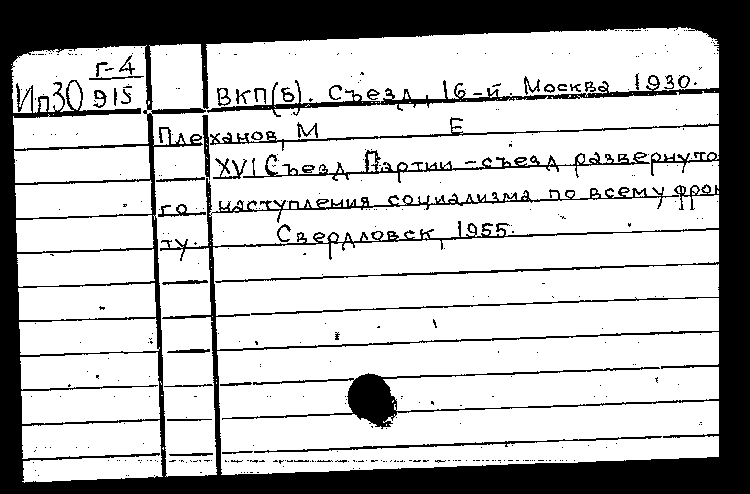 г-4
Ип30 915 ВКП(б). Съезд, 16-й. Москва 1930.
Плеханов, М Е
XVI Съезд Партии – съезд развернуто
го наступления социализма по всему фрон
ту. Свердловск, 1955.